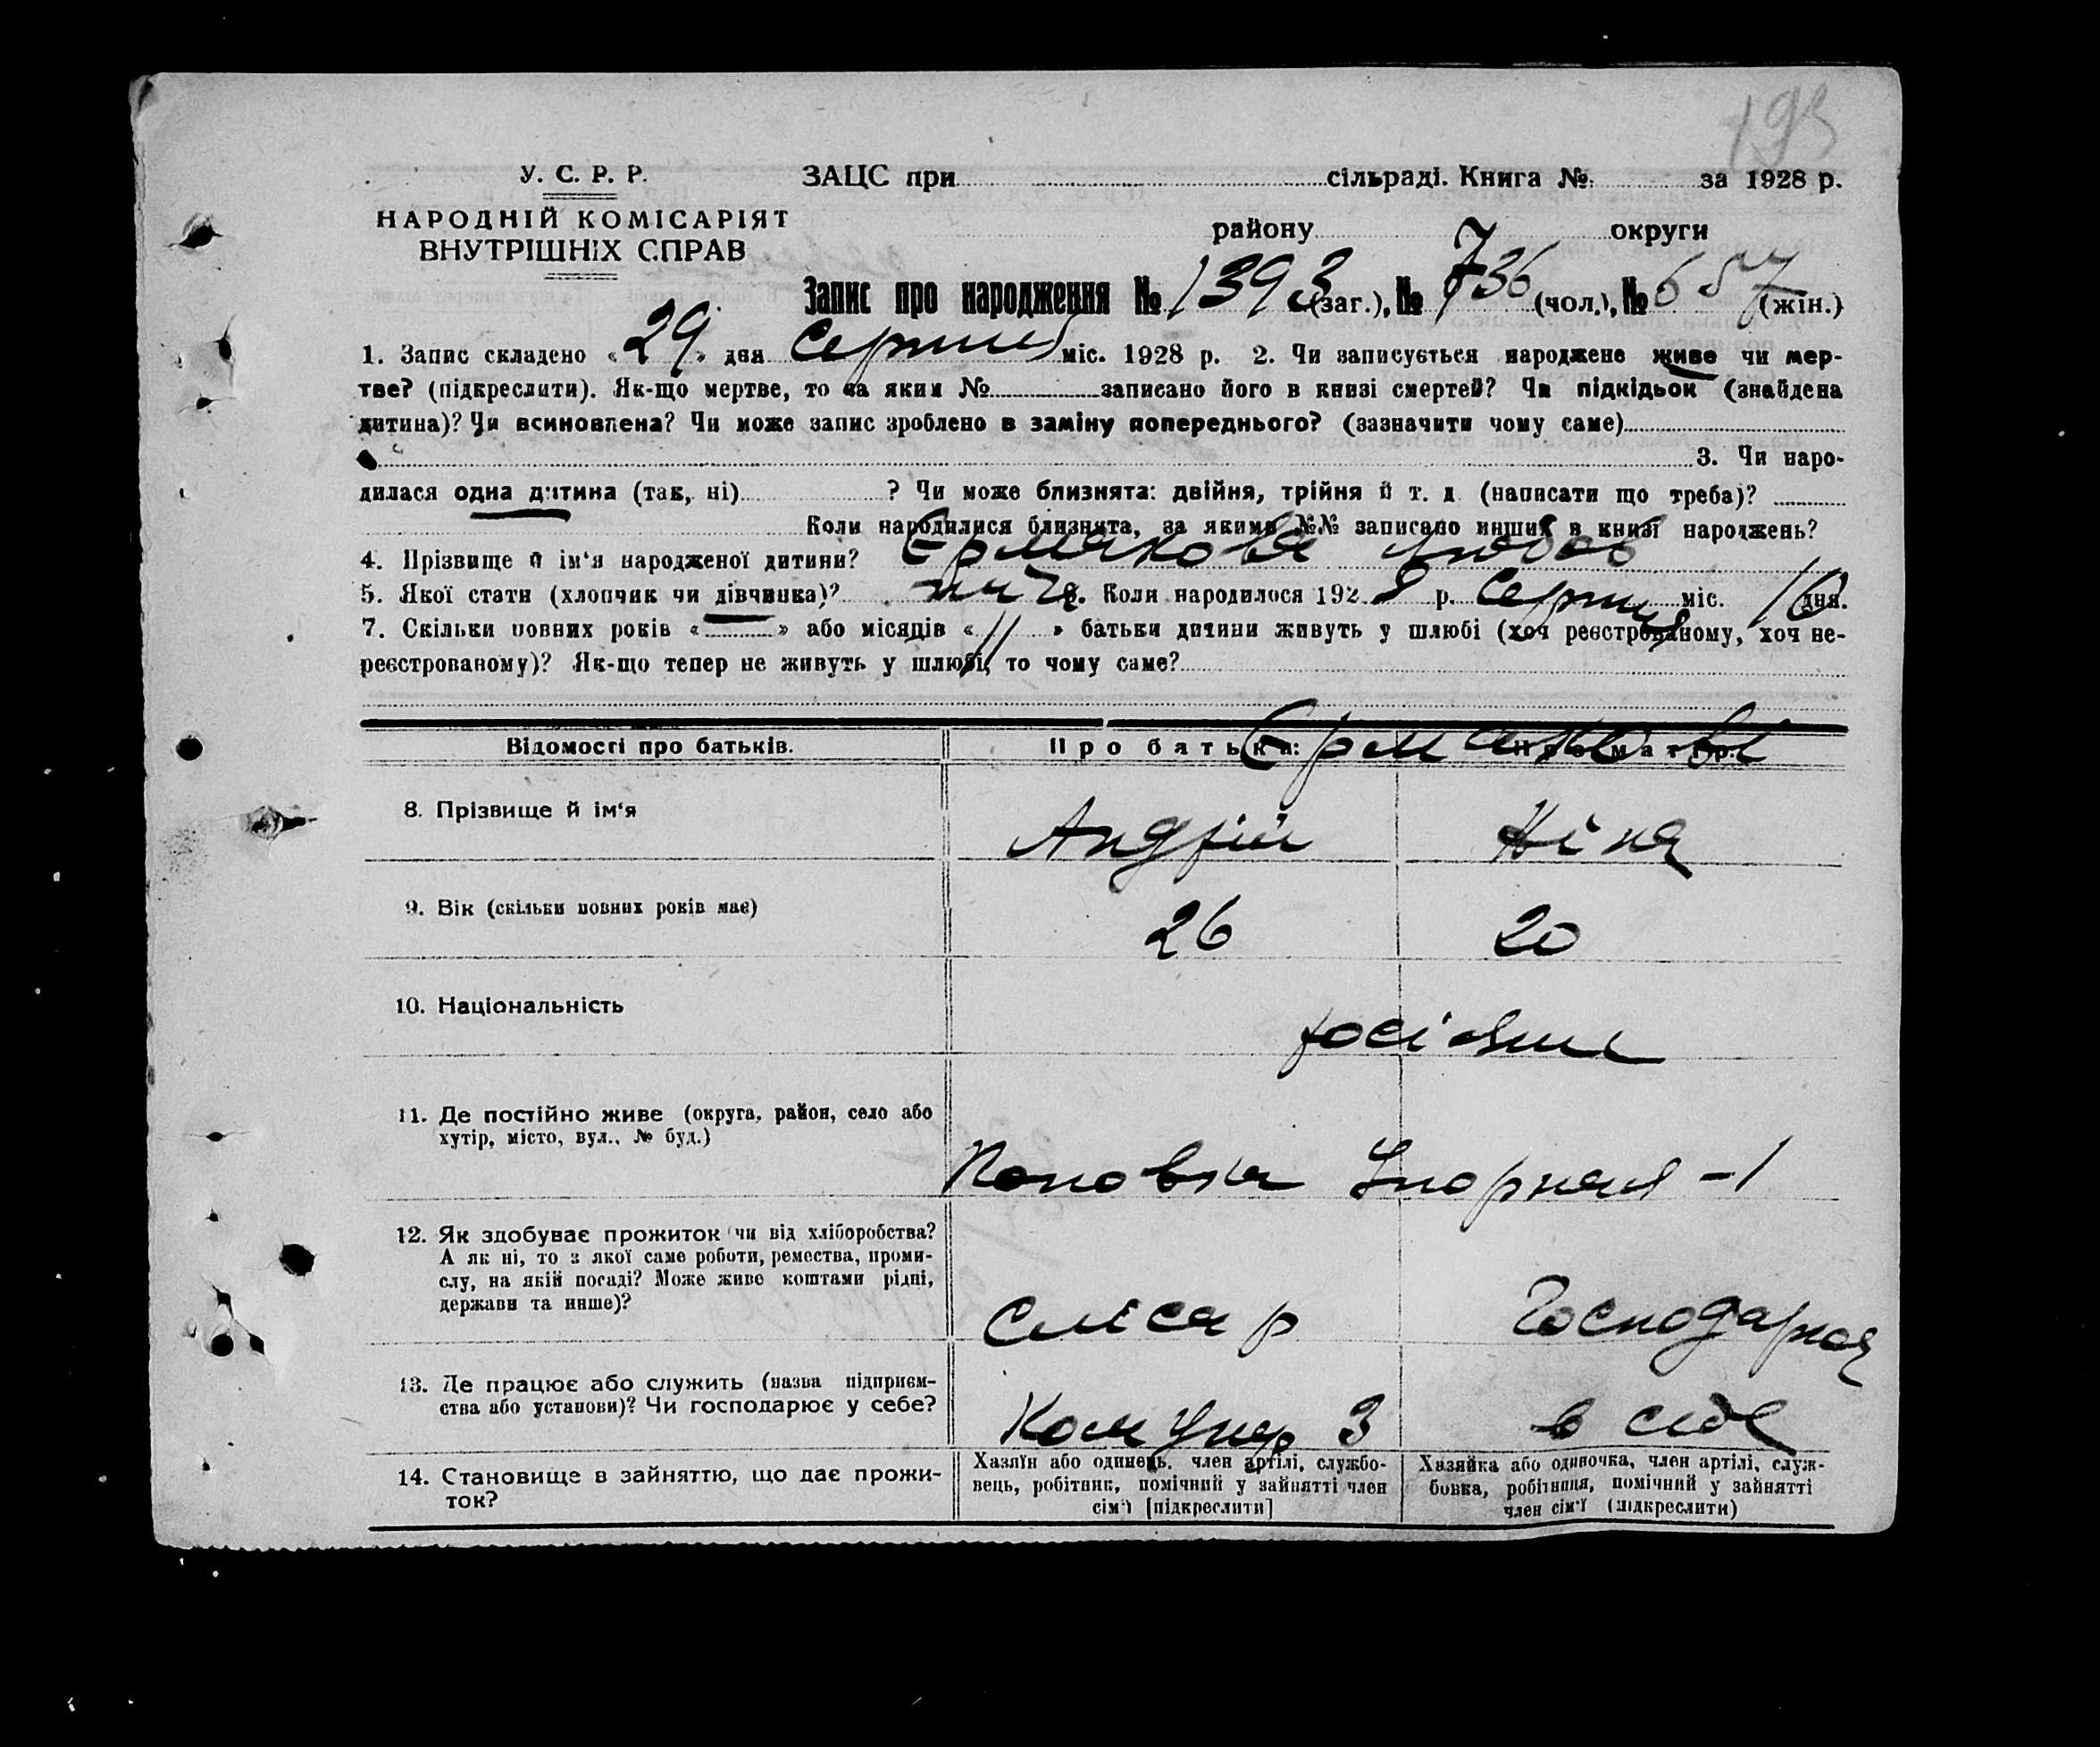 193
У. С. Р. Р.
ЗАЦС при сільраді. Книга № за 1928 р.
НАРОДНІЙ КОМІСАРІЯТ
ВНУТРІШНІХ СПРАВ
району округи
Запис про народження № 1393 (заг.), № 736 (чол.), № 657 (жін.)
1. Запис складено «29» дня Серпня міс. 1928 р. 2. Чи записується народжене живе чи мер-
тве? (підкреслити). Як-що мертве, то за яким № записано його в книзі смертей? Чи підкідьок (знайдена
дитина)? Чи всиновлена? Чи може запис зроблено в заміну попереднього? (зазначити чому саме)
3. Чи наро-
дилася одна дитина (так, ні) ? Чи може близнята: двійня, трійня й т. д (написати що треба)?
Коли народилися близнята, за якими №№ записано инших в книзі народжень?
4. Прізвище й ім‘я народженої дитини? Єрмакова Любов
5. Якої стати (хлопчик чи дівчинка)? 6. Коли народилося 1928 р. Серпня міс. 16 дня.
7. Скільки повних років «—» або місяців «11» батьки дитини живуть у шлюбі (хоч реєстрованому, хоч не-
реєстрованому)? Як-що тепер не живуть у шлюбі, то чому саме?
Відомості про батьків. Про батька: Про матір:
Єрмакові
8. Прізвище й ім‘я Андрій Ніна
9. Вік (скільки повних років має) 26 20
10. Національність росіяни
11. Де постійно живе (округа, район, село або
хутір, місто, вул., № буд.)
Поповка Упорная - 1
12. Як здобуває прожиток чи від хліборобства?
А як ні, то з якої саме роботи, ремества, проми-
слу, на якій посаді? Може живе коштами рідні,
держави та инше)?
Слісар Господарка
13. Де працює або служить (назва підприєм-
ства або установи)? Чи господарює у себе?
в себе
14. Становище в зайняттю, що дає прожи-
ток?
Хазяїн або одинець, член артілі, службо-
вець, робітник, помічний у зайнятті член
сім‘ї [підкреслити]
Хазяйка або одиночка, член артілі, служ-
бовка, робітниця, помічний у зайнятті
член сім‘ї (підкреслити)